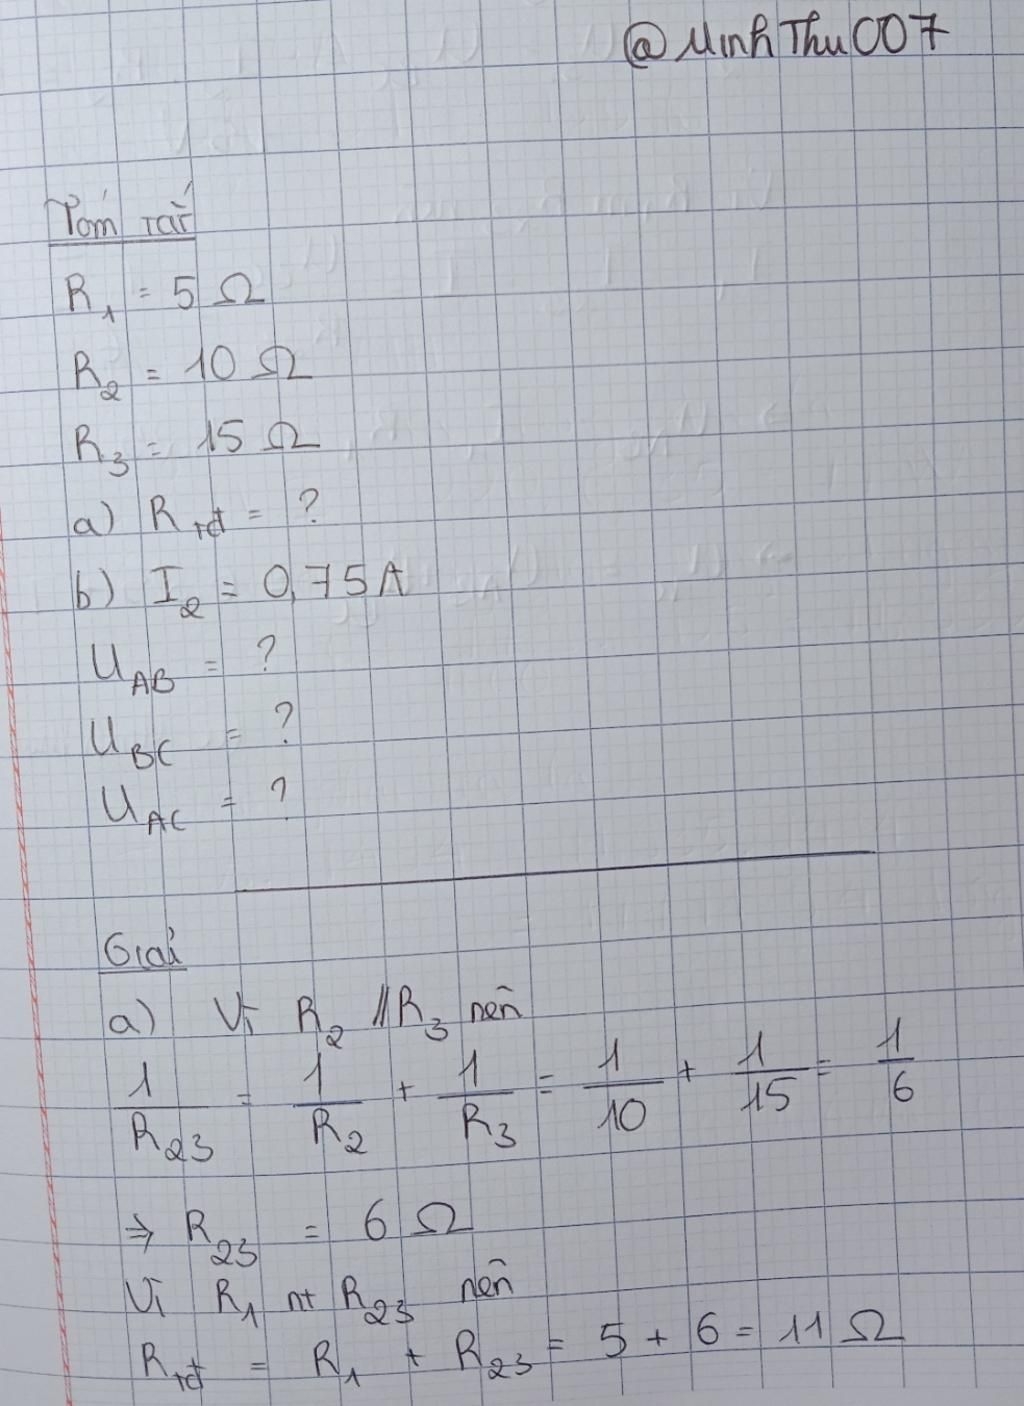 @MinhThu007
Tóm tắt
R₁ = 5 Ω
R₂ = 10 Ω
R₃ = 15 Ω
a) Rtđ = ?
b) I₂ = 0,75A
U_AB = ?
U_BC = ?
U_AC = ?
Giải
a) Vì R₂ // R₃ nên
1/R₂₃ = 1/R₂ + 1/R₃ = 1/10 + 1/15 = 1/6
⇒ R₂₃ = 6 Ω
Vì R₁ nt R₂₃ nên
Rtđ = R₁ + R₂₃ = 5 + 6 = 11 Ω